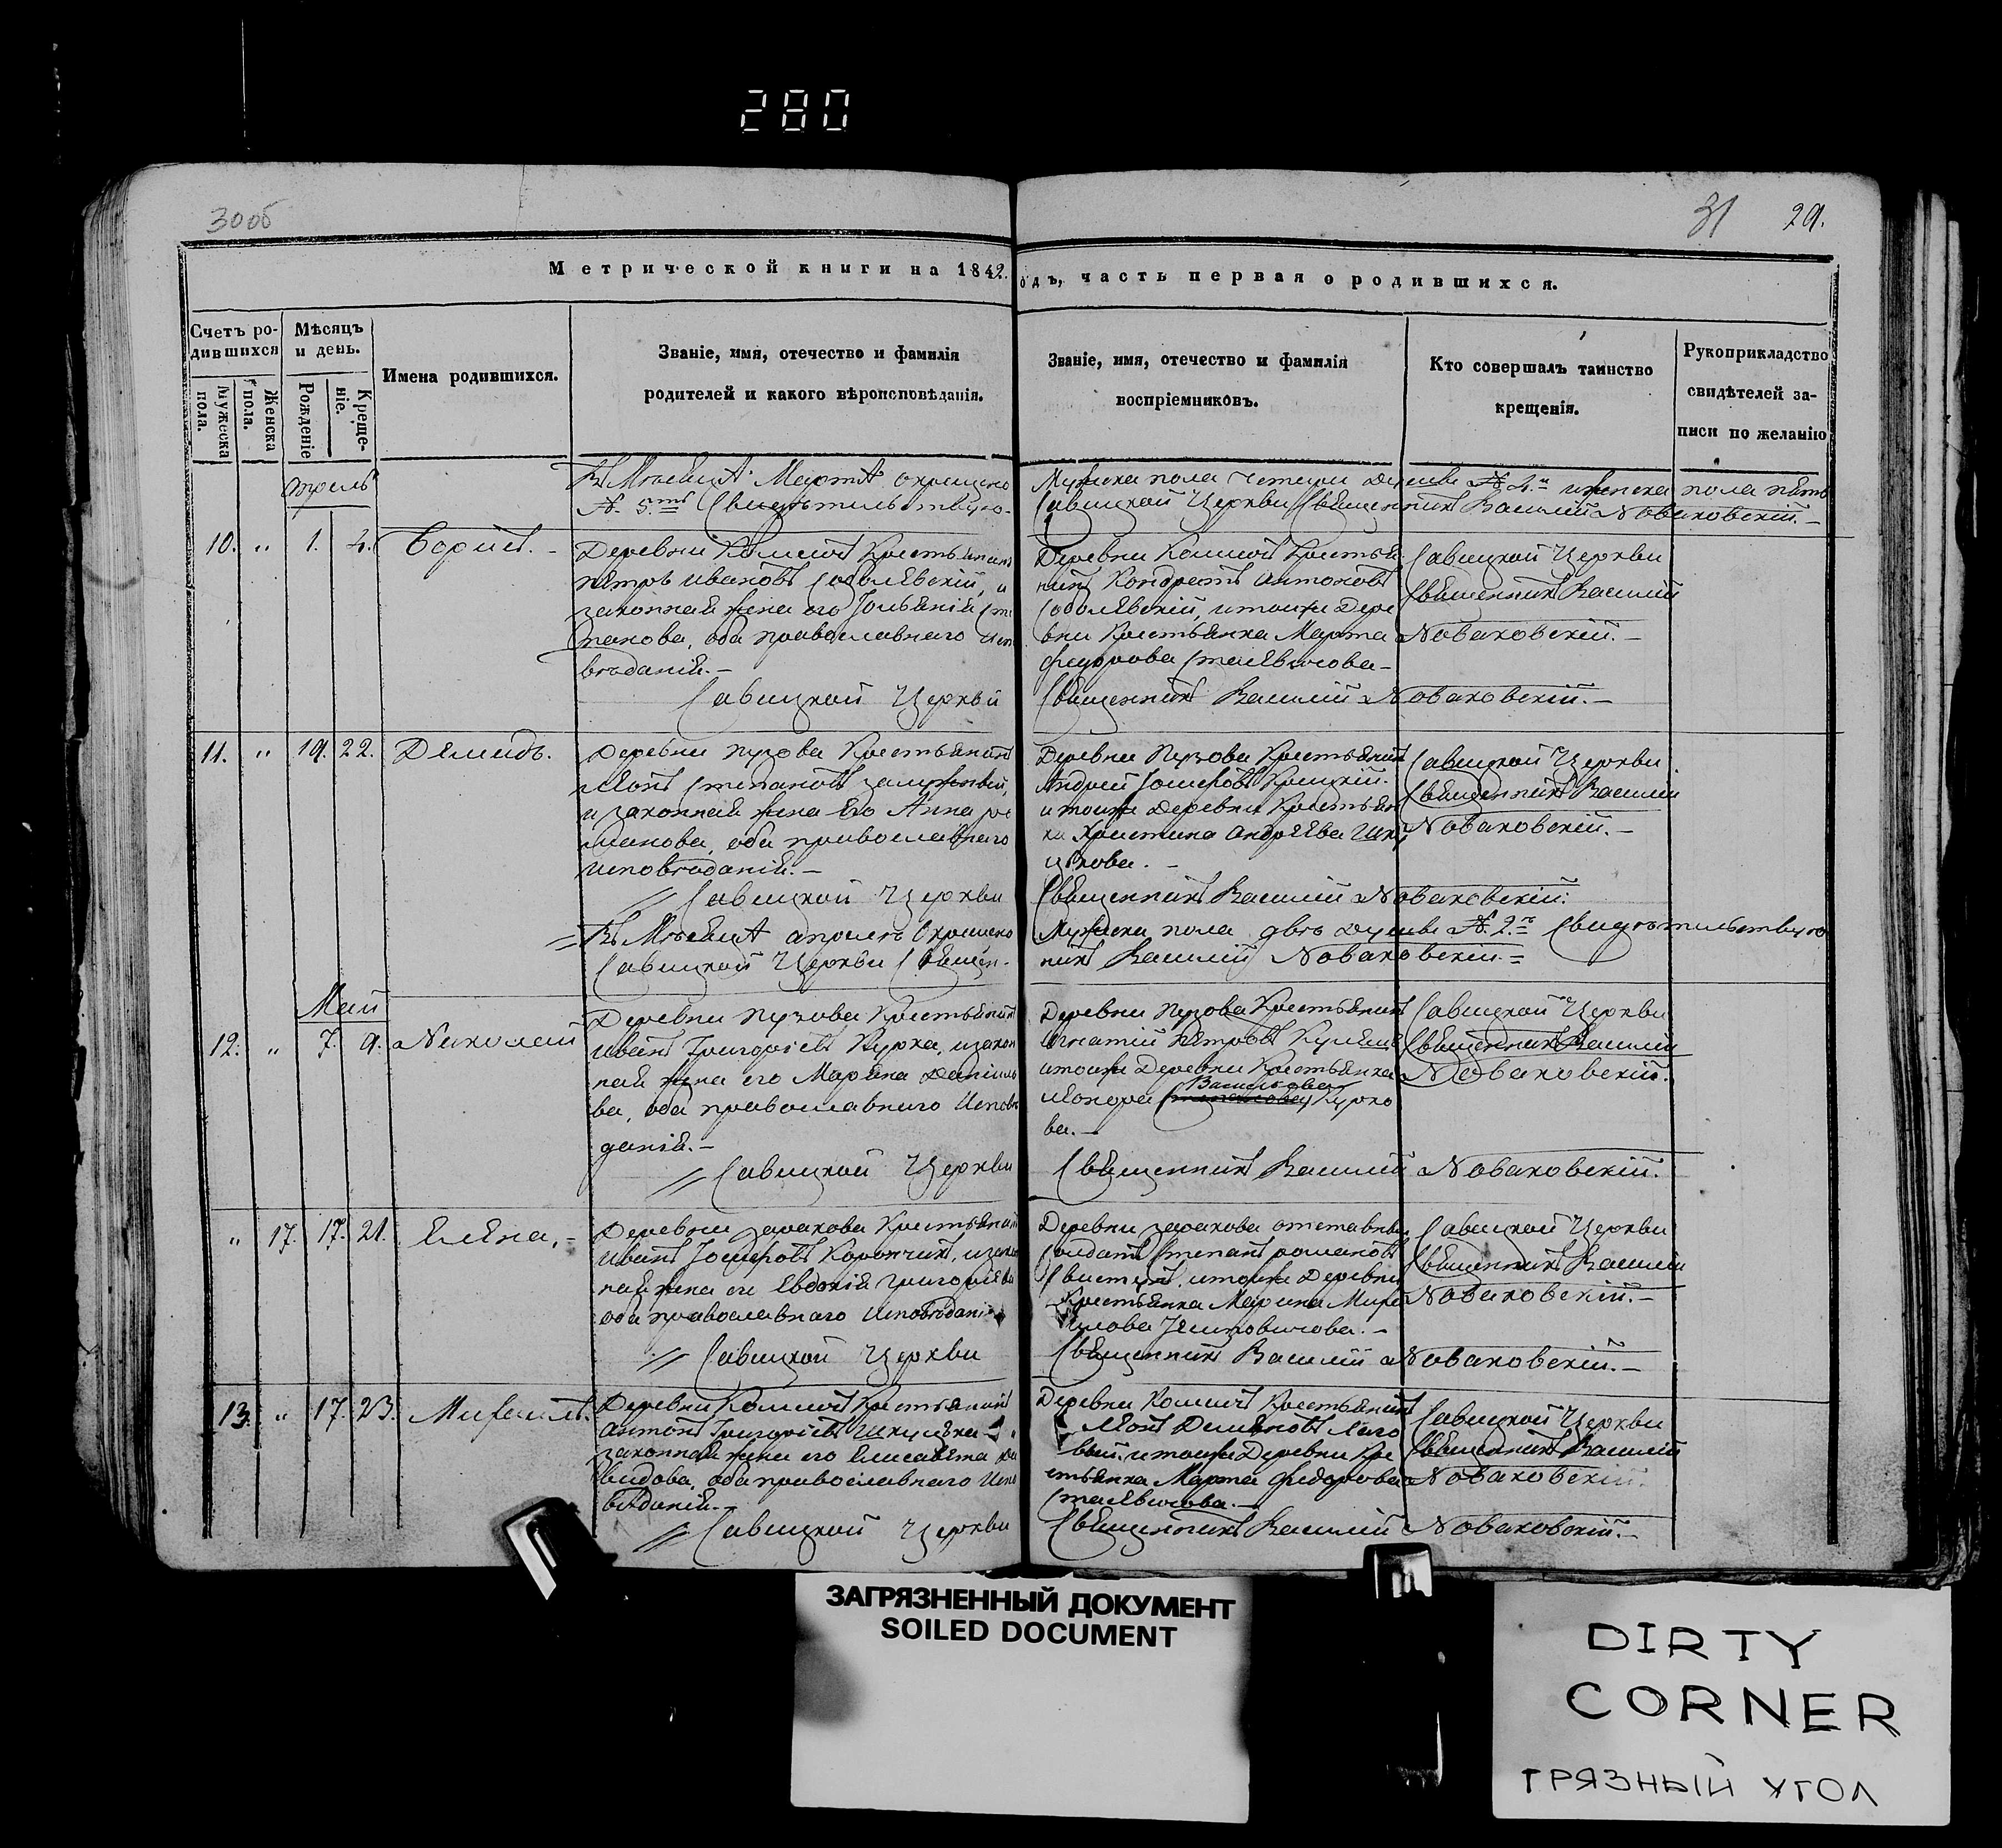 280
30об
31 29.
Метрической книги на 1842.
одъ, часть первая о родившихся.
Счетъ ро-
дившихся
Мужеска
пола.
Женска
пола.
Мѣсяцъ
и день.
Рожденіе
Креще-
ніе.
Имена родившихся.
Званіе, имя, отечество и фамилія
родителей и какого вѣроисповѣданія.
Званіе, имя, отечество и фамилія
воспріемниковъ.
Кто совершалъ таинство
крещенія.
Рукоприкладство
свидѣтелей за-
писи по желанію
Въ Мѣсяцѣ Мартѣ окрещено
№ 5.
Мужеска пола четыри души № 4. и женска пола пять
Савицкой Церкви Священникъ Василій Новаковскій.-
Апрель
10. " 1. 4. Борисъ. -
Деревни Крестьянинъ
Петръ Ивановъ Соболевскій, и
законная жена его Юльянія Сте
панова, оба православнаго Испо
вѣданія.-
Савицкой Церкви
Деревни Крестья
нинъ Кондратъ Антоновъ
Соболевскій, и тойже Дере
вни Крестьянка Марта
Федорова
Священникъ Василій Новаковскій.-
Савицкой Церкви
Священникъ Василій
Новаковскій.-
11. " 19. 22. Демидъ.
Деревни Пузова Крестьянинъ
Леонъ Степановъ
и законная жена его Анна Ро
манова, оба православнаго
Исповѣданія.-
Савицкой Церкви
Деревни Пузова Крестьянинъ
Андрей Іосифовъ
и тойже Деревни Крестьян
ка Христина Андреева
Священникъ Василій Новаковскій.
Савицкой Церкви
Священникъ Василій
Новаковскій.-
Въ Мѣсяцѣ Апрелѣ Окрещено
Савицкой Церкви Священ-
Мужеска пола двѣ души № 2. Свидѣтельствую
никъ Василій Новаковскій.=
Май
12. " 7. 9. Николай
Деревни Пузова Крестьянинъ
Иванъ Григоріевъ Курка, и закон
ная жена его Марьяна Даніило
ва, оба православнаго Исповѣ
данія.-
Савицкой Церкви
Деревни Пузова Крестьянинъ
Игнатій Петровъ
и тойже Деревни Крестьянка
Васильова
Курко
ва.-
Священникъ Василій Новаковскій.
Савицкой Церкви
Священникъ Василій
Новаковскій.
" 17. 17. 21. Елена.-
Деревни Крестьянинъ
Иванъ Іосифовъ и закон
ная жена его Евдокія Григоріева
оба православнаго Исповѣданія
Савицкой Церкви
Деревни отставный
Солдатъ Степанъ Романовъ
и тойже Деревни
Крестьянка Марина
Священникъ Василій Новаковскій.-
Савицкой Церкви
Священникъ Василій
Новаковскій.-
13. " 17. 23. Михаилъ.
Деревни Крестьянинъ
Антонъ Григоріевъ
законная жена его Елисавета Да
видова, оба православнаго Испо
вѣданія.-
Савицкой Церкви
Деревни Крестьянинъ
Леонъ
и тойже Деревни Кре
стьянка Марта Федорова
Священникъ Василій Новаковскій.-
Савицкой Церкви
Священникъ Василій
Новаковскій.
ЗАГРЯЗНЕННЫЙ ДОКУМЕНТ
SOILED DOCUMENT
DIRTY
CORNER
ГРЯЗНЫЙ УГОЛ